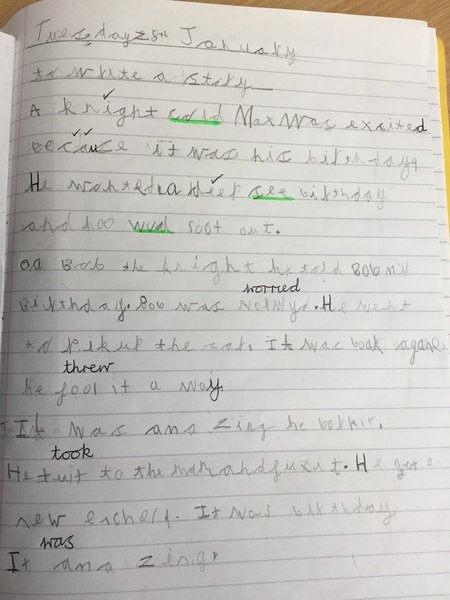 Tuesday 28th January
to write a story
A knight calld Max was excited
because it was his birthday
He wanted a sleep see birthday
and hoo wud soot out.
Bob the knight he told Bob my
worried
Birthday. Bob was worlyd. He went
to pik up the cat. It was book agane
threw
he fool it a way
It was ana zing he
took
He tuit to the man and fuxit. He get a
new It was birthday
was
It ana zing.